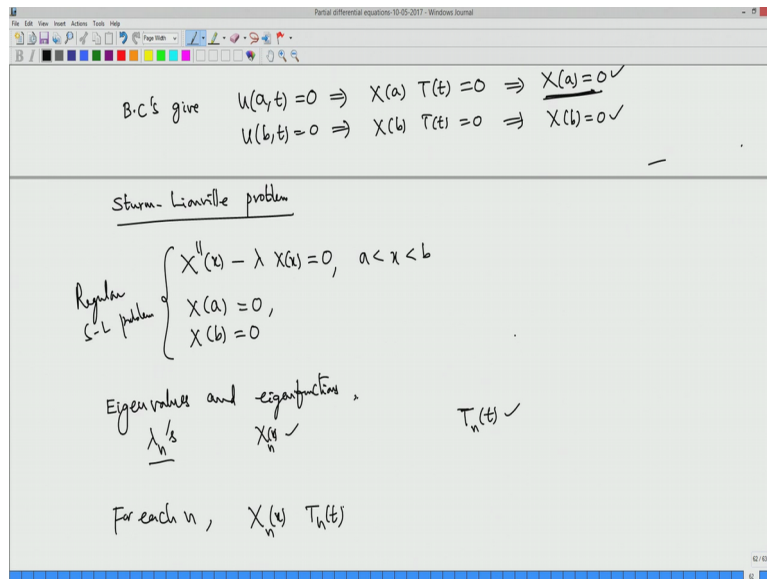 Partial differential equations-10-05-2017 - Windows Journal
File Edit View Insert Actions Tools Help
Page Width
B I
B.C's give u(a,t) = 0 ⇒ X(a) T(t) = 0 ⇒ X(a) = 0 ✓
u(b,t) = 0 ⇒ X(b) T(t) = 0 ⇒ X(b) = 0 ✓
Sturm-Liouville problem
Regular S-L problem { X''(x) - λ X(x) = 0, a < x < b
X(a) = 0,
X(b) = 0
Eigenvalues and eigenfunctions,
λn's Xn(x) ✓ Tn(t) ✓
For each n, Xn(x) Tn(t)
62 / 63
62